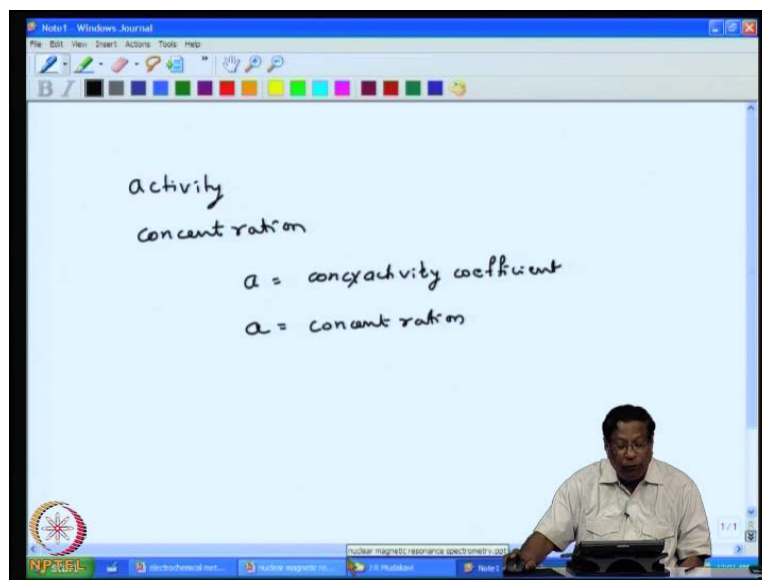 Note1 - Windows Journal
File Edit View Insert Actions Tools Help
B I
activity
concentration
a = concxactivity coefficient
a = concentration
1/1
nuclear magnetic resonance spectrometry.ppt
NPTEL
electrochemical met...
nuclear magnetic re...
J R Mudakavi
Note1